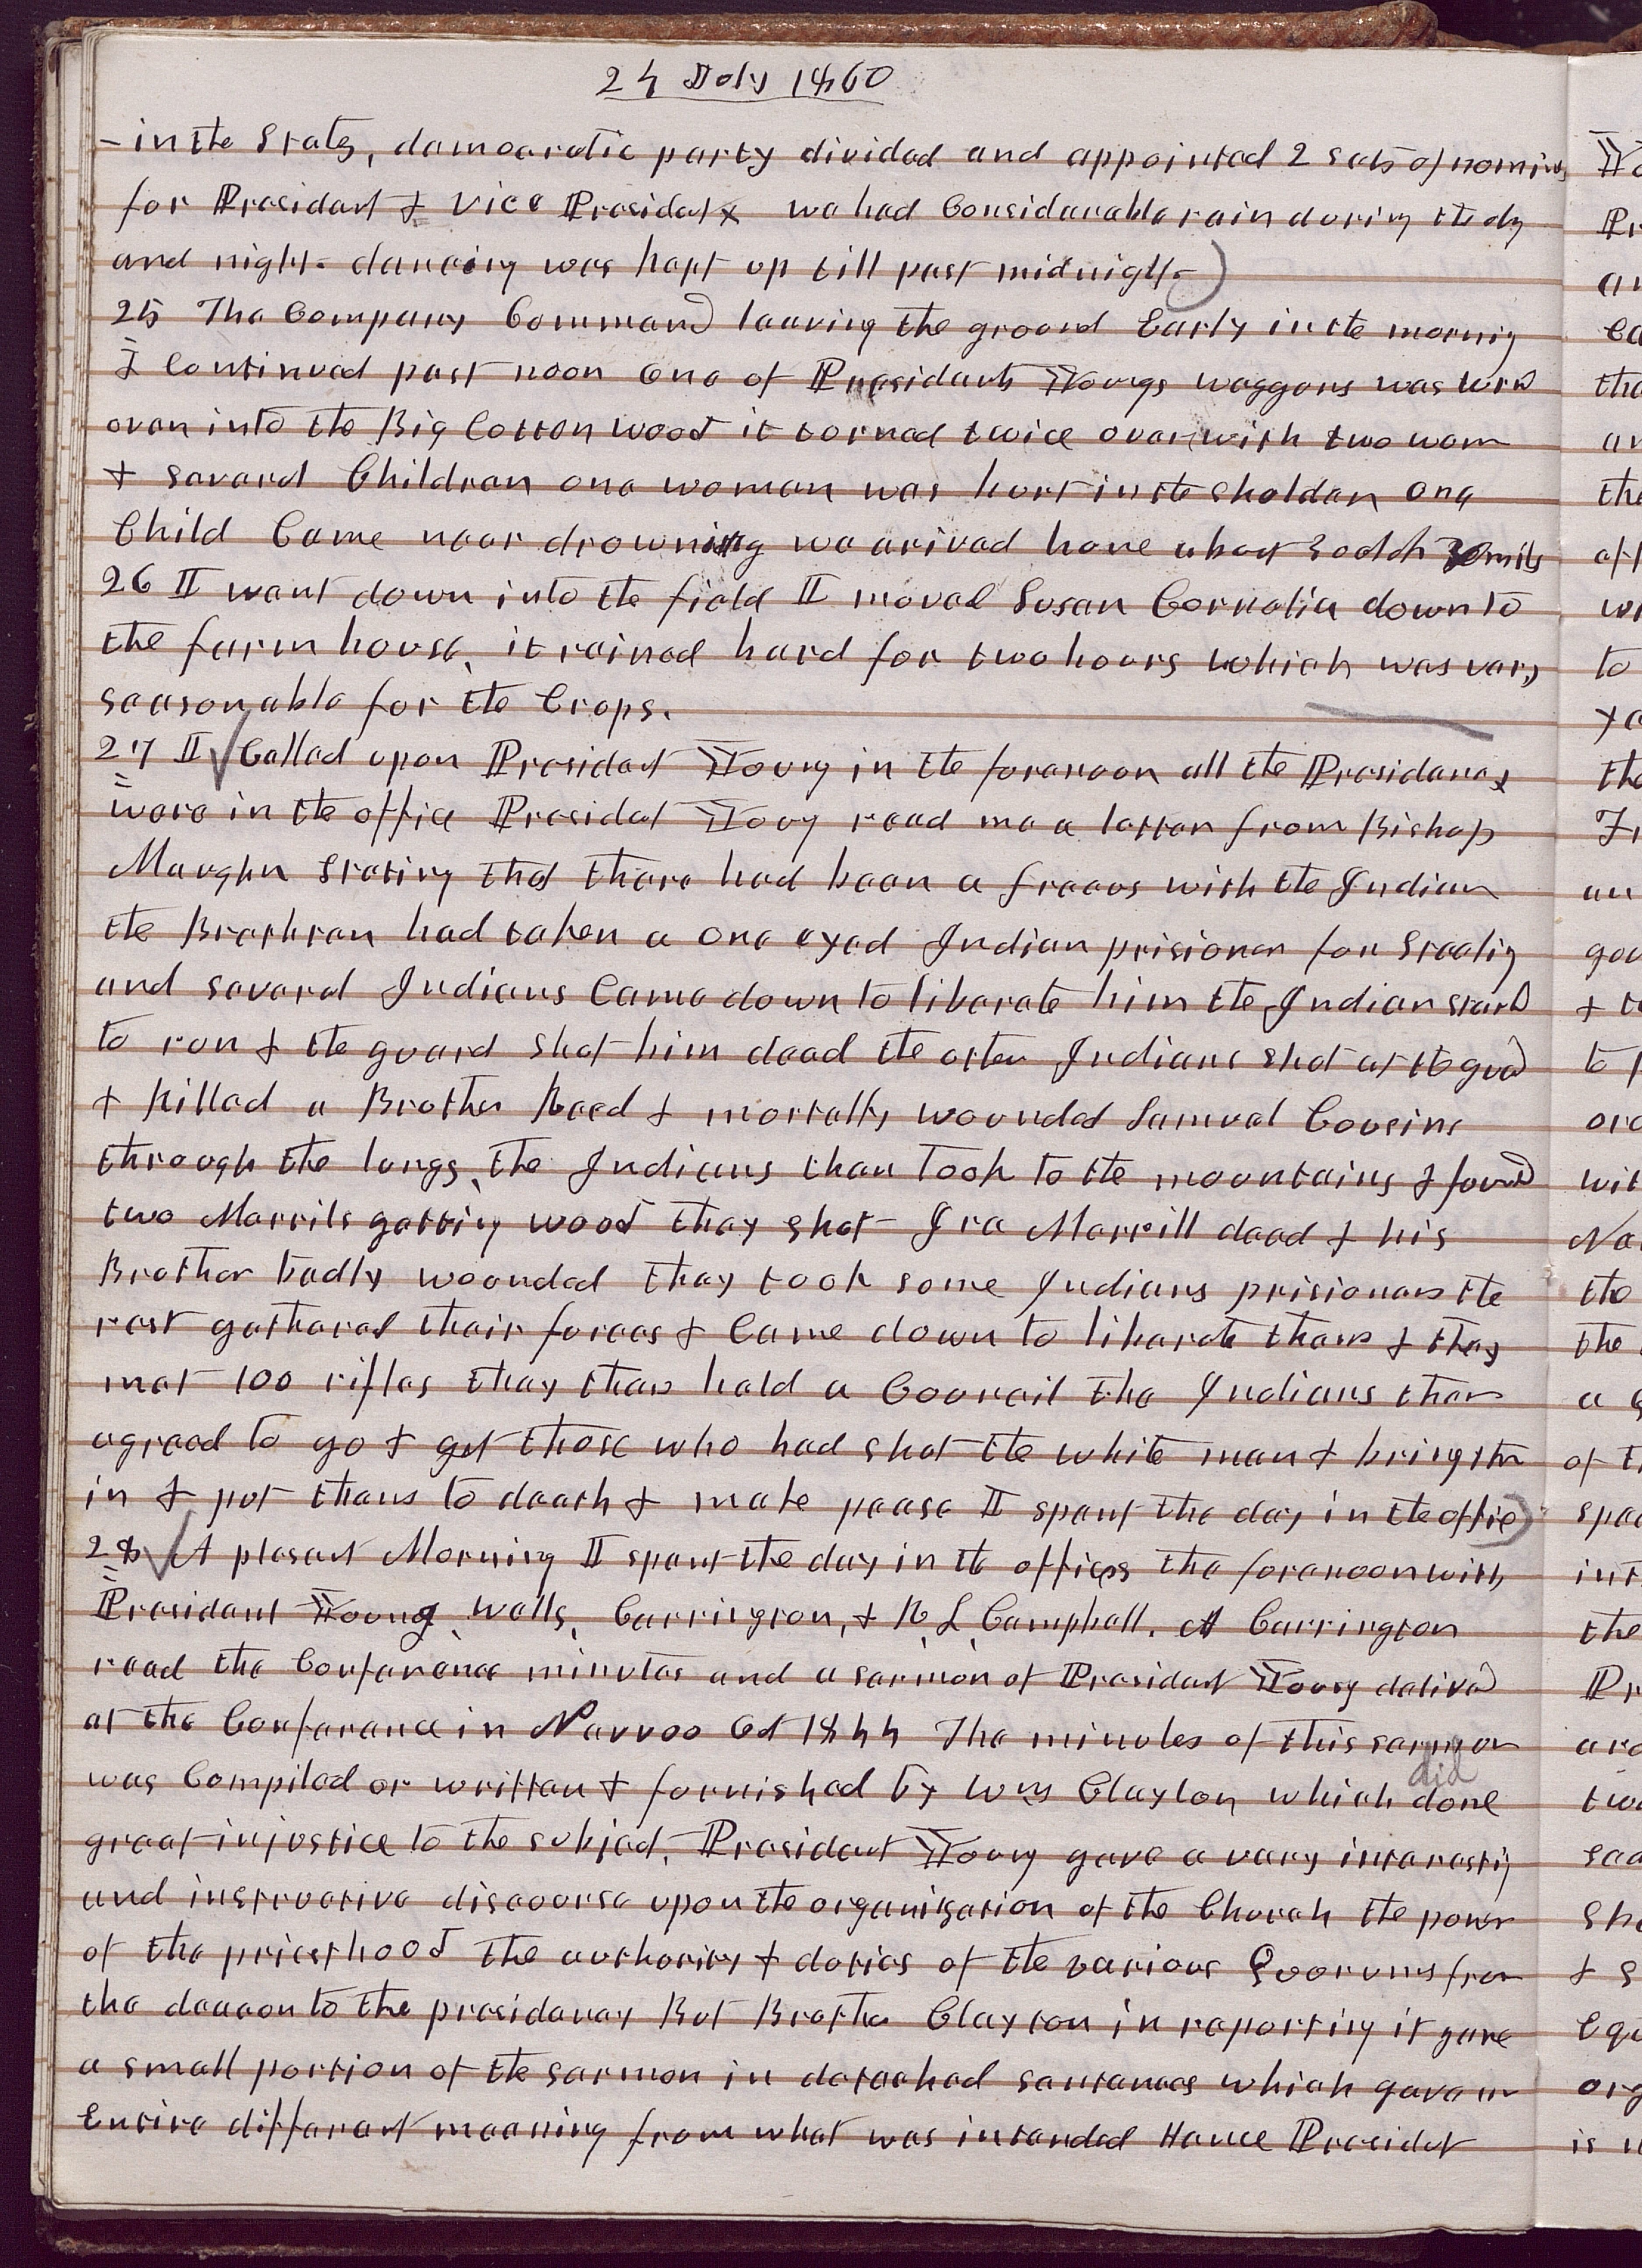 24 July 1860
- in the States, democratic party divided and appointed 2 sets of nomines
for President & Vice President we had Considerable rain during the dy
and night. dancing was kept up till past midnight-
25 The Company Commencd leaving the ground Early in the mornig
& Continued past noon One of Presidents Youngs waggons was turnd
over into the Big Cotton wood it turned twice over with two wom
& several Children one woman was hurt in the sholder one
Child Came near drowning we arived home about 30 mils
26 I went down into the field I moved Susan Cornelia down to
the farm house, it rained hard for two hours which was very
seasonable for the Crops.
27 I Called upon President Young in the forenoon all the Presidency
were in the office President Young read me a letter from Bishop
Maughn Stating that there had been a fracus with the Indian
the Brethren had taken a one eyed Indian prisioner for Stealig
and several Indians Came down to liberate him the Indian startd
to run & the guard shot him dead the other Indians shot at the guad
& killed a Brother Reed & mortally wounded Samuel Cousins
through the lungs, the Indians then took to the mountains & found
two Merrils getting wood they shot Ira Merrill dead & his
Brother badly wounded they took some Indians prisioners the
rest gathered their forces & Came down to liberate them & they
met 100 rifles they then held a Council the Indians then
agreed to go & get those who had shot the white man & bring thm
in & put them to death & make peace I spent the day in the office
28 A plesant Morning I spent the day in the offices the forenoon with
President Young, Wells, Carrington, & R, L, Campbell. A Carrington
read the Conference minutes and a sermon of President Young deliverd
at the Conferance in Nauvoo Oct 1844 The minutes of this sermon
was Compiled or written & furnished by Wm Clayton which did done
great injustice to the subject. President Young gave a very interestig
and instructive discourse upon the organization of the Church the power
of the priesthood the authority & duties of the various Quorums from
the deacon to the presidency But Brother Clayton in reporting it gave
a small portion of the sermon in detached sentances which gave an
Entire differant meaning from what was intended Hence President